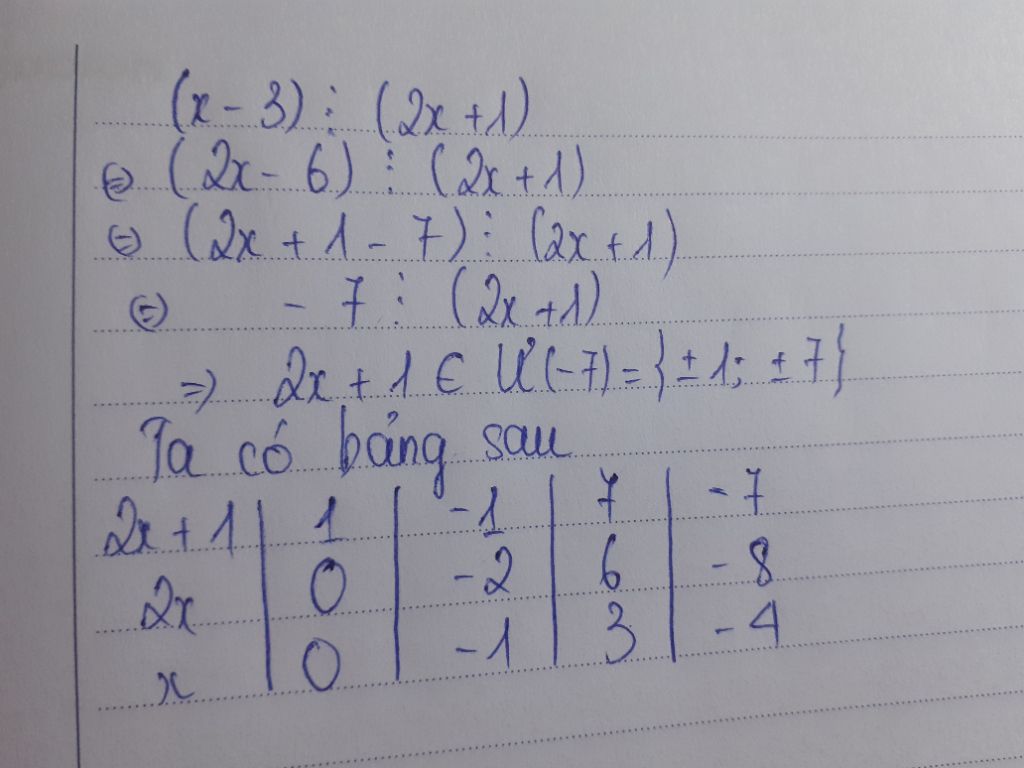 (x - 3) ⋮ (2x + 1)
⇔ (2x - 6) ⋮ (2x + 1)
⇔ (2x + 1 - 7) ⋮ (2x + 1)
⇔ - 7 ⋮ (2x + 1)
=> 2x + 1 ∈ Ư(-7) = {±1; ±7}
Ta có bảng sau
2x + 1 | 1 | -1 | 7 | -7
2x | 0 | -2 | 6 | -8
x | 0 | -1 | 3 | -4